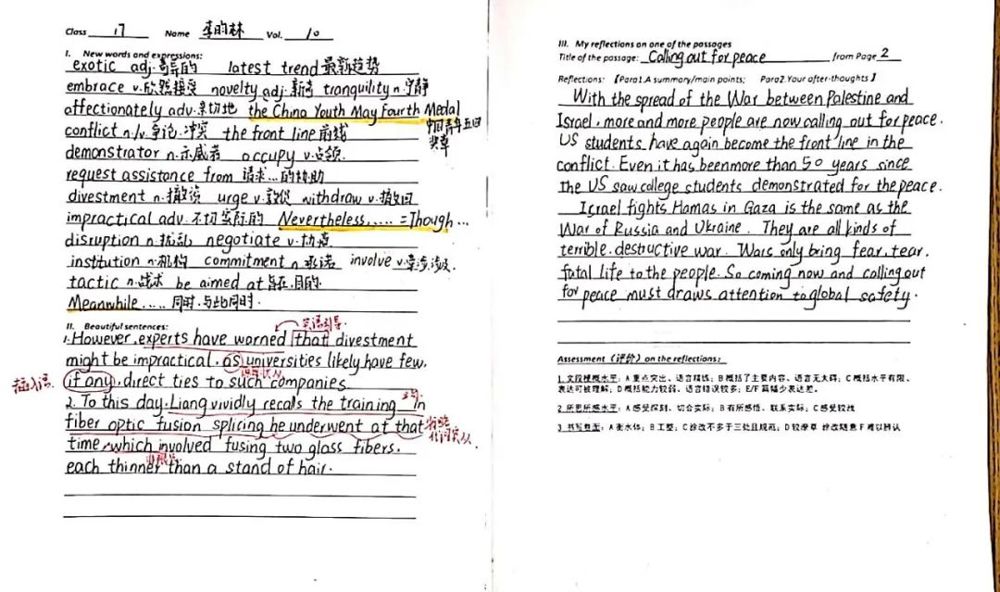 Class 17 Name 李昀林 Vol. 10
I. New words and expressions:
exotic adj.奇异的 latest trend 最新趋势
embrace v.欣然接受 novelty adj.新奇 tranquility n.宁静
affectionately adv.亲切地 the China Youth May Fourth Medal
中国青年五四
奖章
conflict n./v.争论.冲突 the front line 前线
demonstrator n.示威者 occupy v.占领
request assistance from 请求...的协助
divestment n.撤资 urge v.敦促 withdraw v.撤回
impractical adv.不切实际的 Nevertheless,.... = Though...
disruption n.扰乱 negotiate v.协商
institution n.机构 commitment n.承诺 involve v.牵涉,涉及.
tactic n.战术 be aimed at 旨在.目的.
Meanwhile..... 同时.与此同时.
II. Beautiful sentences:
1.However, experts have warned that divestment
might be impractical, as universities likely have few,
插入语.
if any, direct ties to such companies
2. To this day, Liang vividly recalls the training in
fiber optic fusion splicing he underwent at that
time, which involved fusing two glass fibers,
each thinner than a stand of hair.
III. My reflections on one of the passages
Title of the passage: Calling out for peace from Page 2
Reflections: 【Para1.A summary/main points; Para2.Your after-thoughts】
With the spread of the War between Palestine and
Israel, more and more people are now calling out for peace.
US students have again become the front line in the
conflict. Even it has beenmore than 50 years since
the US saw college students demonstrated for the peace.
Icrael fights Hamas in Gaza is the same as the
War of Russia and Ukraine. They are all kinds of
terrible, destructive war. Wars only bring fear, tear,
fatal life to the people. So coming now and calling out
for peace must draws attention to global safety.
Assessment (评价) on the reflections:
1.文段梗概水平: A 重点突出、语言精练; B 概括了主要内容、语言无大碍; C 概括水平有限、
表达可被理解; D 概括能力较弱、语言错误较多; E/F 篇幅少表达差。
2.所思所感水平: A 感受深刻、切合实际; B 有所感悟、联系实际; C 感受较浅
3.书写卷面: A 衡水体; B 工整; C 涂改不多于三处且规范; D 较潦草 涂改随意 F 难以辨认